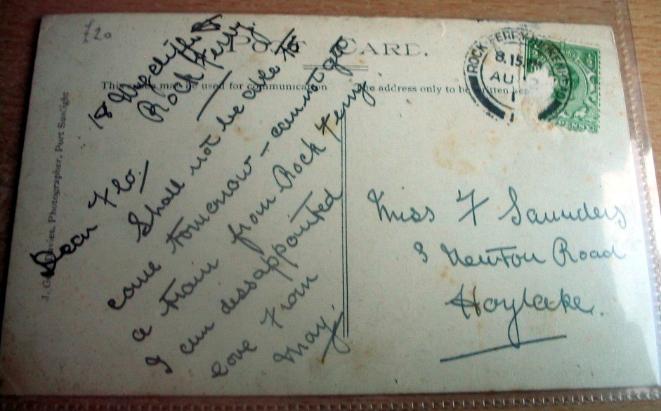 £20
POST CARD.
This space may be used for communication
The address only to be written here
J. G. Davies, Photographer, Port Sunlight
ROCK FERRY
8.15 PM
AU
1
18 Wycliffe St
Rock Ferry.
Dear Flo.
Shall not be able to
come tomorrow - cannot get
a train from Rock Ferry.
I am dissappointed
Love from
May.
Miss F Saunders
3 Newton Road
Hoylake.